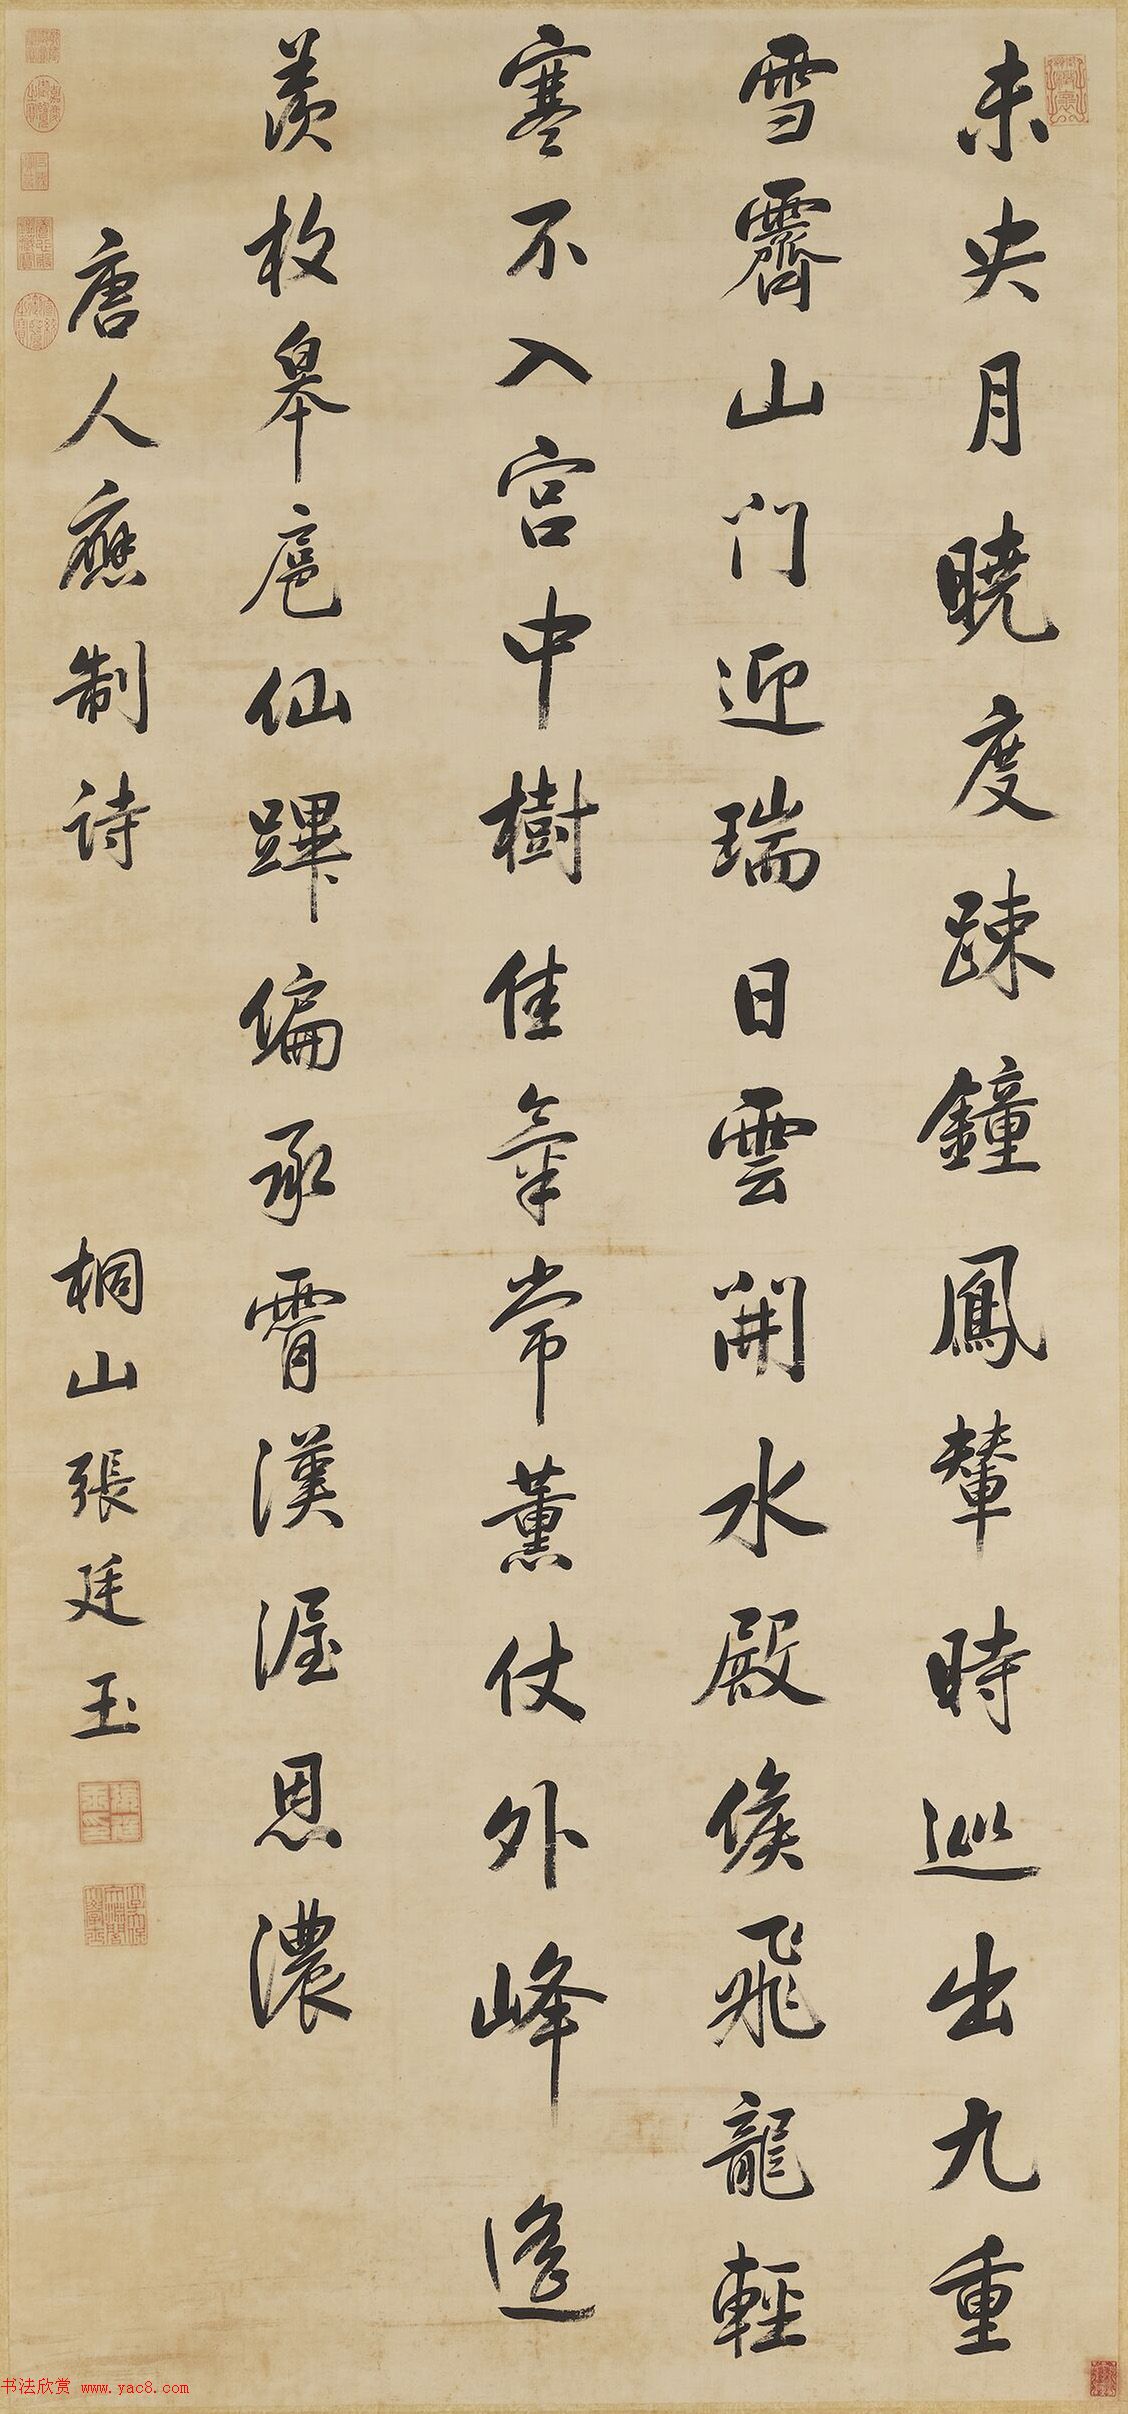 未央月曉度踈鐘鳳輦時巡出九重
雪霽山門迎瑞日雲開水殿候飛龍輕
寒不入宮中樹佳氣常薰仗外峰遙
羨枚皋扈仙蹕偏承霄漢渥恩濃
唐人應制詩
桐山張廷玉
书法欣赏 www.yac8.com